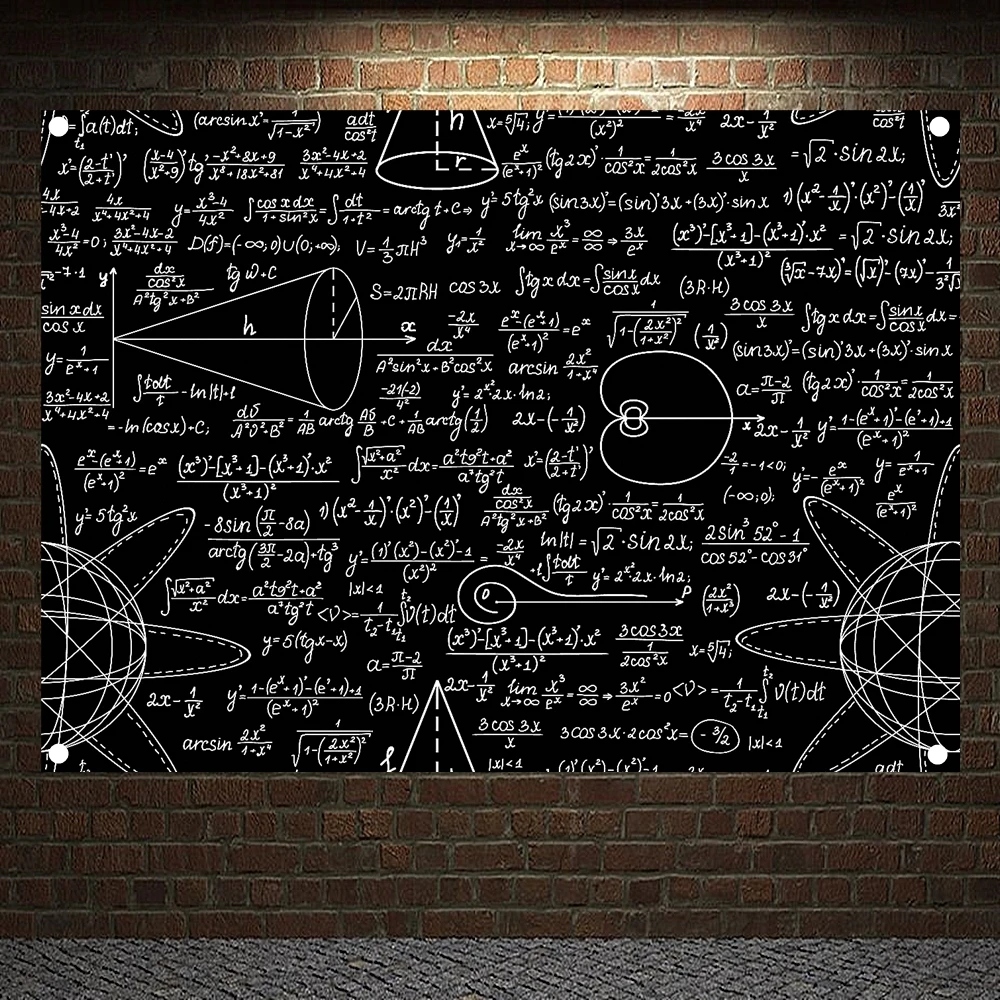 ∫a(t)dt; (arcsin x'= 1/√(1-x²) adt/cos²t h x=⁵√4; y= 2x-1/x²
x'=((2-t)/(2+t))' ((x-4)/(x²+9))' tg (-x²+8x+9)/(x⁴+18x²+81) (3x²-4x+2)/(x⁴+4x²+4) r eˣ/(eˣ+1)² (tg2x)' 1/cos²x=1/2cos²x 3cos3x/x =√2·sin2x;
4x/(x⁴+4x²+4) y=(x³-4)/4x² ∫cosxdx/(1+sin²x)=∫dt/(1+t²)=arctg t+C⇒ y'=5tg²x (sin3x)'=(sin)'3x+(3x)'·sinx 1)(x²-1/x)'(x²)'-(1/x)'
(x³-4)/4x²=0; (3x²-4x-2)/(x⁴+4x²+4) D(f)=(-∞;0)∪(0;+∞); V=1/3 πH³ y₁=1/x² lim x→∞ x³/eˣ=∞/∞⇒3x/eˣ ((x³)'-[x³+1]-(x³+1)'·x²)/(x³+1)² =√2·sin2x;
y dx/cos²x/(A²tg²x+B²) tg w+C S=2πRH cos3x ∫tgxdx=∫sinx/cosx dx (3R·H) (∛x-7x)'=(√x)'-(7x)'
sinxdx/cosx h x -2x/x⁴ (eˣ-(eˣ+1))/(eˣ+1)²=eˣ 1/√(1-(2x²/(1+x²))²) (1/x)' 3cos3x/x ∫tgxdx=∫sinx/cosx dx=
y=1/(eˣ+1) dx/(A²sin²x+B²cos²x) arcsin 2x²/(1+x⁴) (sin3x)'=(sin)'3x+(3x)'·sinx
(3x²-4x+2)/(x⁴+4x²+4) ∫tdt/t -ln|t|+l -21(-2)/4² y'=2ˣ²2x·ln2; a=(π-2)/π (tg2x)' 1/cos²x=1/2cos²x
=-ln(cosx)+C; dϑ/(A²ϑ²+B²)=1/AB arctg Aϑ/B+C+1/AB arctg(1/2) 2x-(-1/x²) x 2x-1/x² y'=(1-(eˣ+1)'-(eˣ+1)+1)/(eˣ+1)²
(eˣ-(eˣ+1))/(eˣ+1)²=eˣ ((x³)'-[x³+1]-(x³+1)'·x²)/(x³+1)² ∫√(x²+a²)/x² dx=(a²tg²t+a²)/(a³tg²t) x'=((2-t)/(2+t))' -2/1=-1<0; y'=-eˣ/(eˣ+1)² y=1/(eˣ+1)
y'=5tg²x 1)(x²-1/x)'(x²)'-(1/x)' dx/cos²x/(A²tg²x+B²) (tg2x)' 1/cos²x=1/2cos²x (-∞;0); eˣ/(eˣ+1)²
-8sin(π/2-8a)/arctg(3π/2-2a)+tg³ y'=((1)'(x²)-(x²)'·1)/(x²)²=-2x/x⁴ ln|t|=√2·sin2x; (2sin³52°-1)/(cos52°-cos31°)
∫√(x²+a²)/x² dx=(a²tg²t+a²)/(a³tg²t) |x|<1 +l∫tdt/t y'=2ˣ²2x·ln2; (2x²/(1+x²)) 2x-(-1/x²)
<V>=1/(t₂-t₁)∫V(t)dt O P
y=5(tgx-x) a=(π-2)/π ((x³)'-[x³+1]-(x³+1)'·x²)/(x³+1)² 3cos3x/(1/2cos²x) x=⁵√4;
2x-1/x² y'=(1-(eˣ+1)'-(e'+1)+1)/(eˣ+1)² (3R·H) 2x-1/x² lim x→∞ x³/eˣ=∞/∞⇒3x²/eˣ=0 <V>=1/(t₂-t₁)∫V(t)dt
arcsin 2x²/(1+x⁴) 1/√(1-(2x²/(1+x²))²) 3cos3x/x 3cos3x·2cos²x=(-3/2) |x|<1
l |x|<1 adt